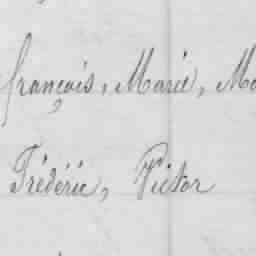 françois, Marie, Ma
Frédéric, Victor